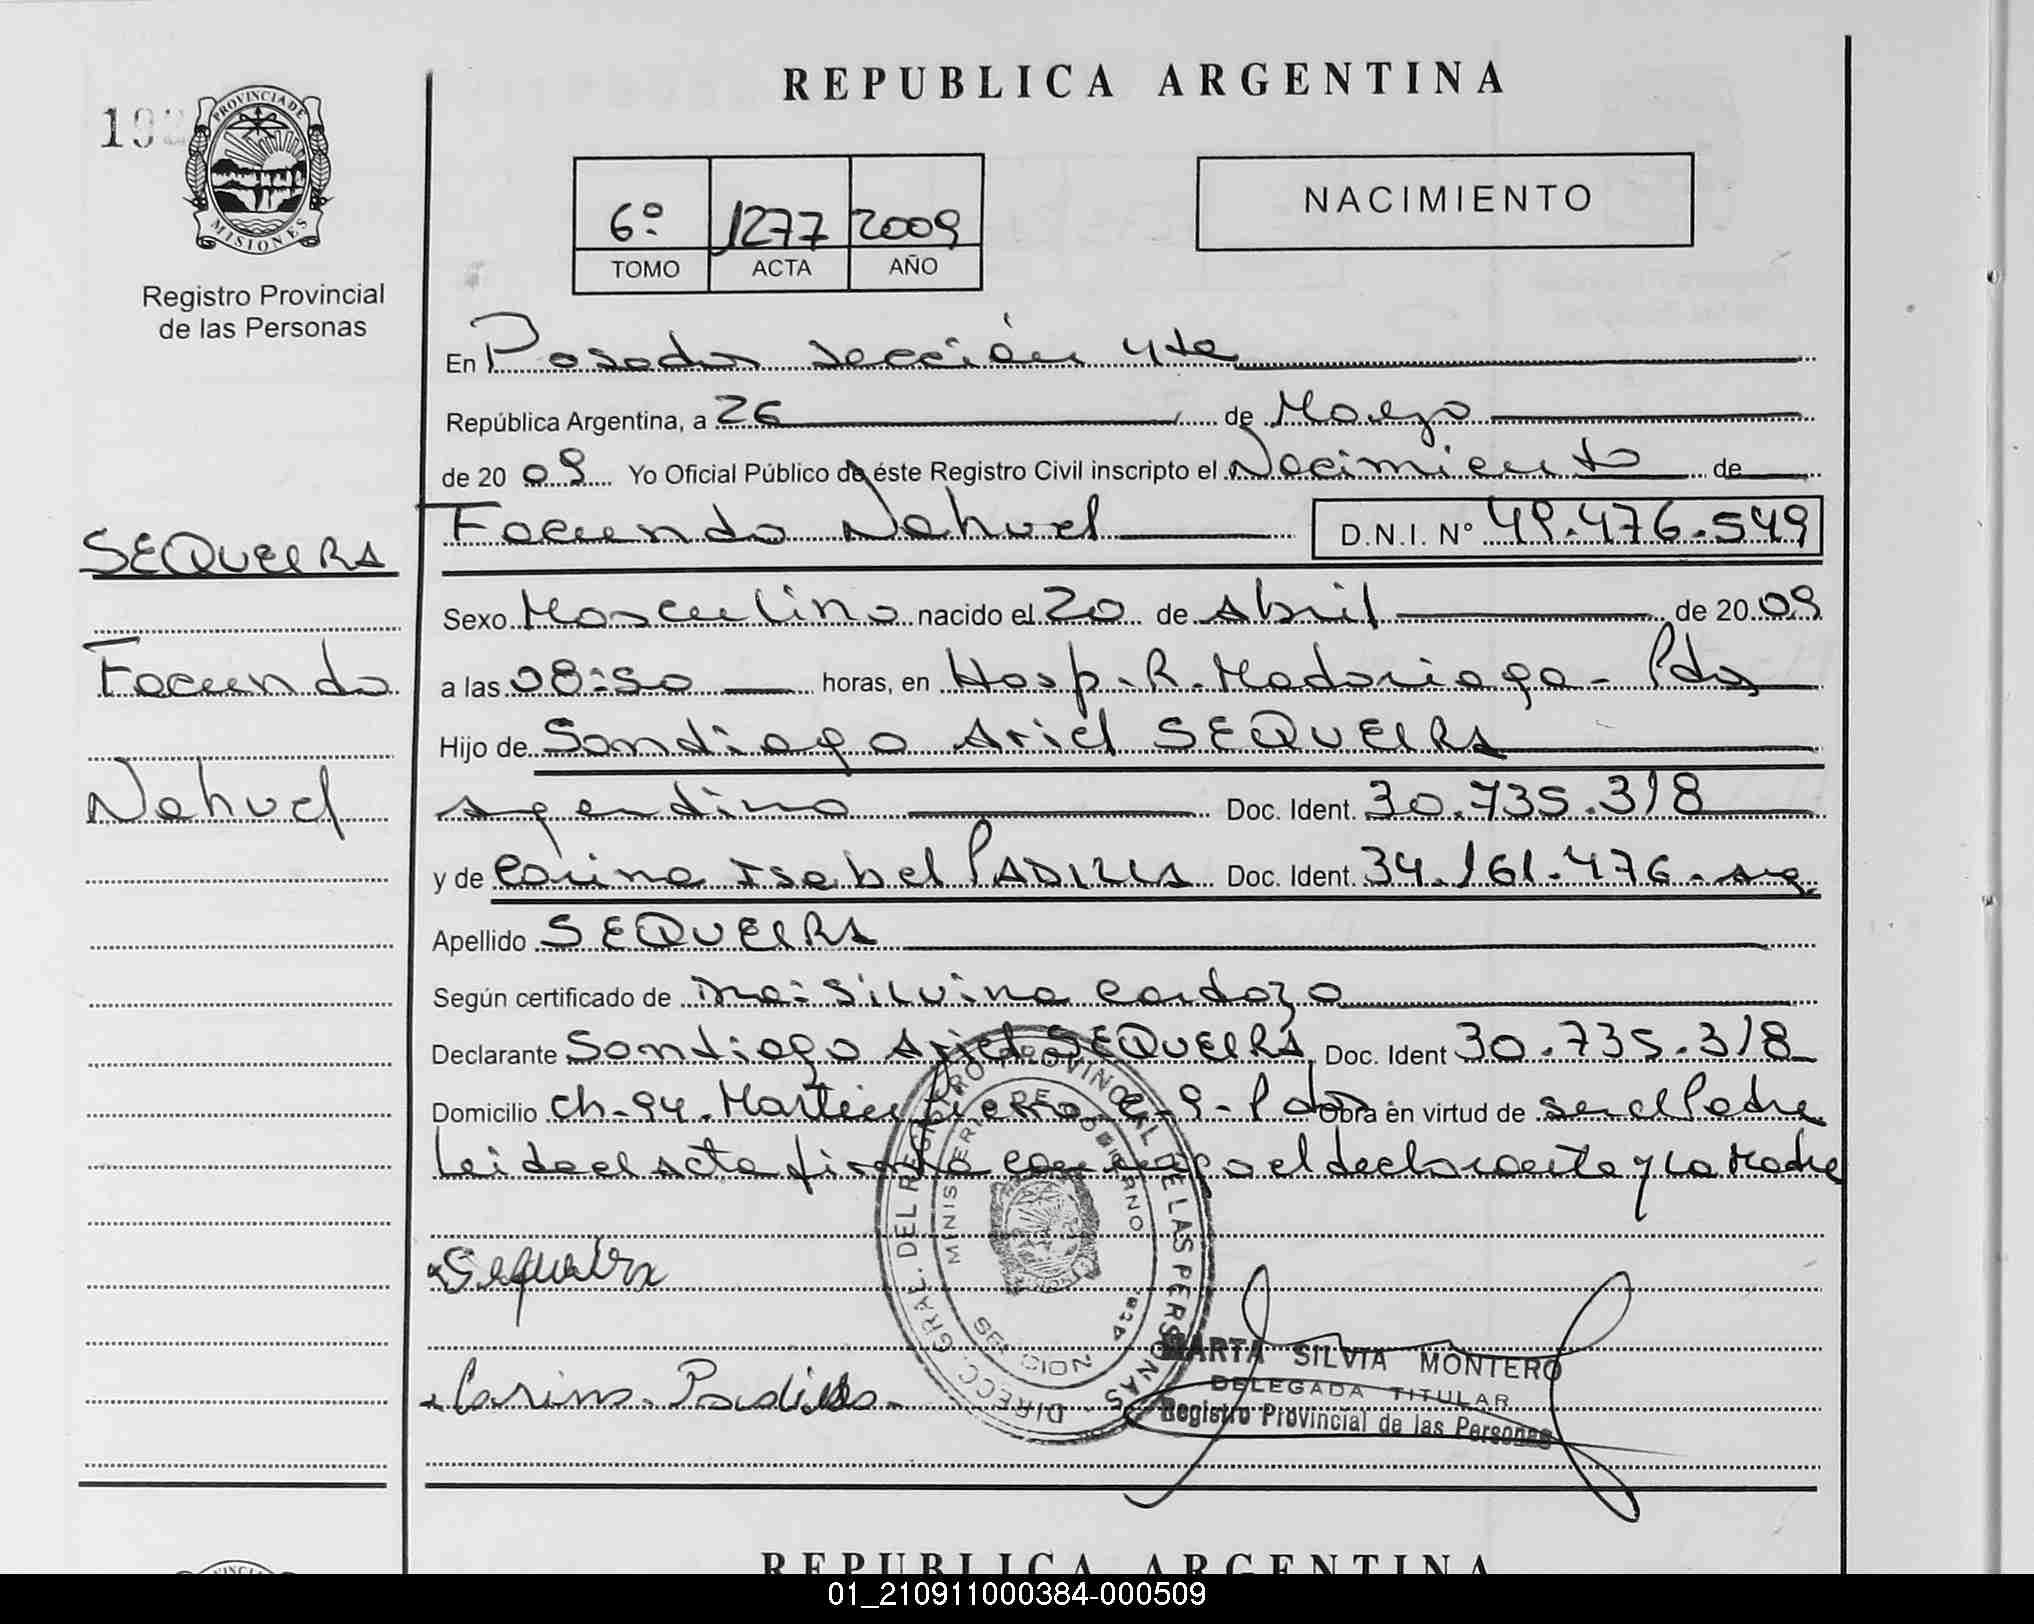 REPUBLICA ARGENTINA
PROVINCIA DE
MISIONES
Registro Provincial
de las Personas
6º 1277 2009
TOMO ACTA AÑO
NACIMIENTO
En Posadas sección 4ta
República Argentina, a 26 de Marzo
de 20 09 Yo Oficial Público de éste Registro Civil inscripto el Nacimiento de
Facundo Nahuel D.N.I. Nº 49.476.549
SEQUEIRA
Facundo
Nahuel
Sexo Masculino nacido el 20 de Abril de 20 09
a las 08:50 horas, en Hosp. R. Madariaga - Pdas
Hijo de Santiago Ariel SEQUEIRA
Argentino Doc. Ident. 30.735.318
y de Carina Isabel PADILLA Doc. Ident. 34.161.476 - Arg.
Apellido SEQUEIRA
Según certificado de Silvina Cardozo
Declarante Santiago Ariel SEQUEIRA Doc. Ident 30.735.318
Domicilio Ch-94. Martin Fierro C-9-Pdas Obra en virtud de ser el Padre
Leida el Acta firma conmigo el declarante y la Madre
Sequeira
Carina Padilla
DIRECC. GRAL. DEL REGISTRO PROVINCIAL DE LAS PERSONAS
MINISTERIO DE GOBIERNO
SECCION 4ta.
MARTA SILVIA MONTERO
DELEGADA TITULAR
Registro Provincial de las Personas
REPUBLICA ARGENTINA
01_210911000384-000509